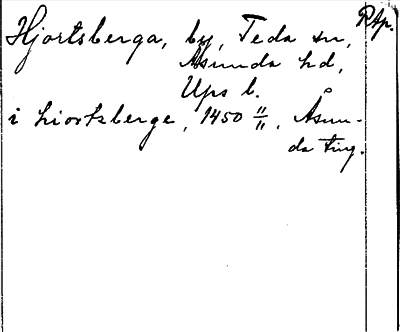 Hjortsberga, by, Teda sn,
Rtp.
Åsunda hd,
Ups l.
i hiortzberge, 1450 11/11, Åsun-
da ting.